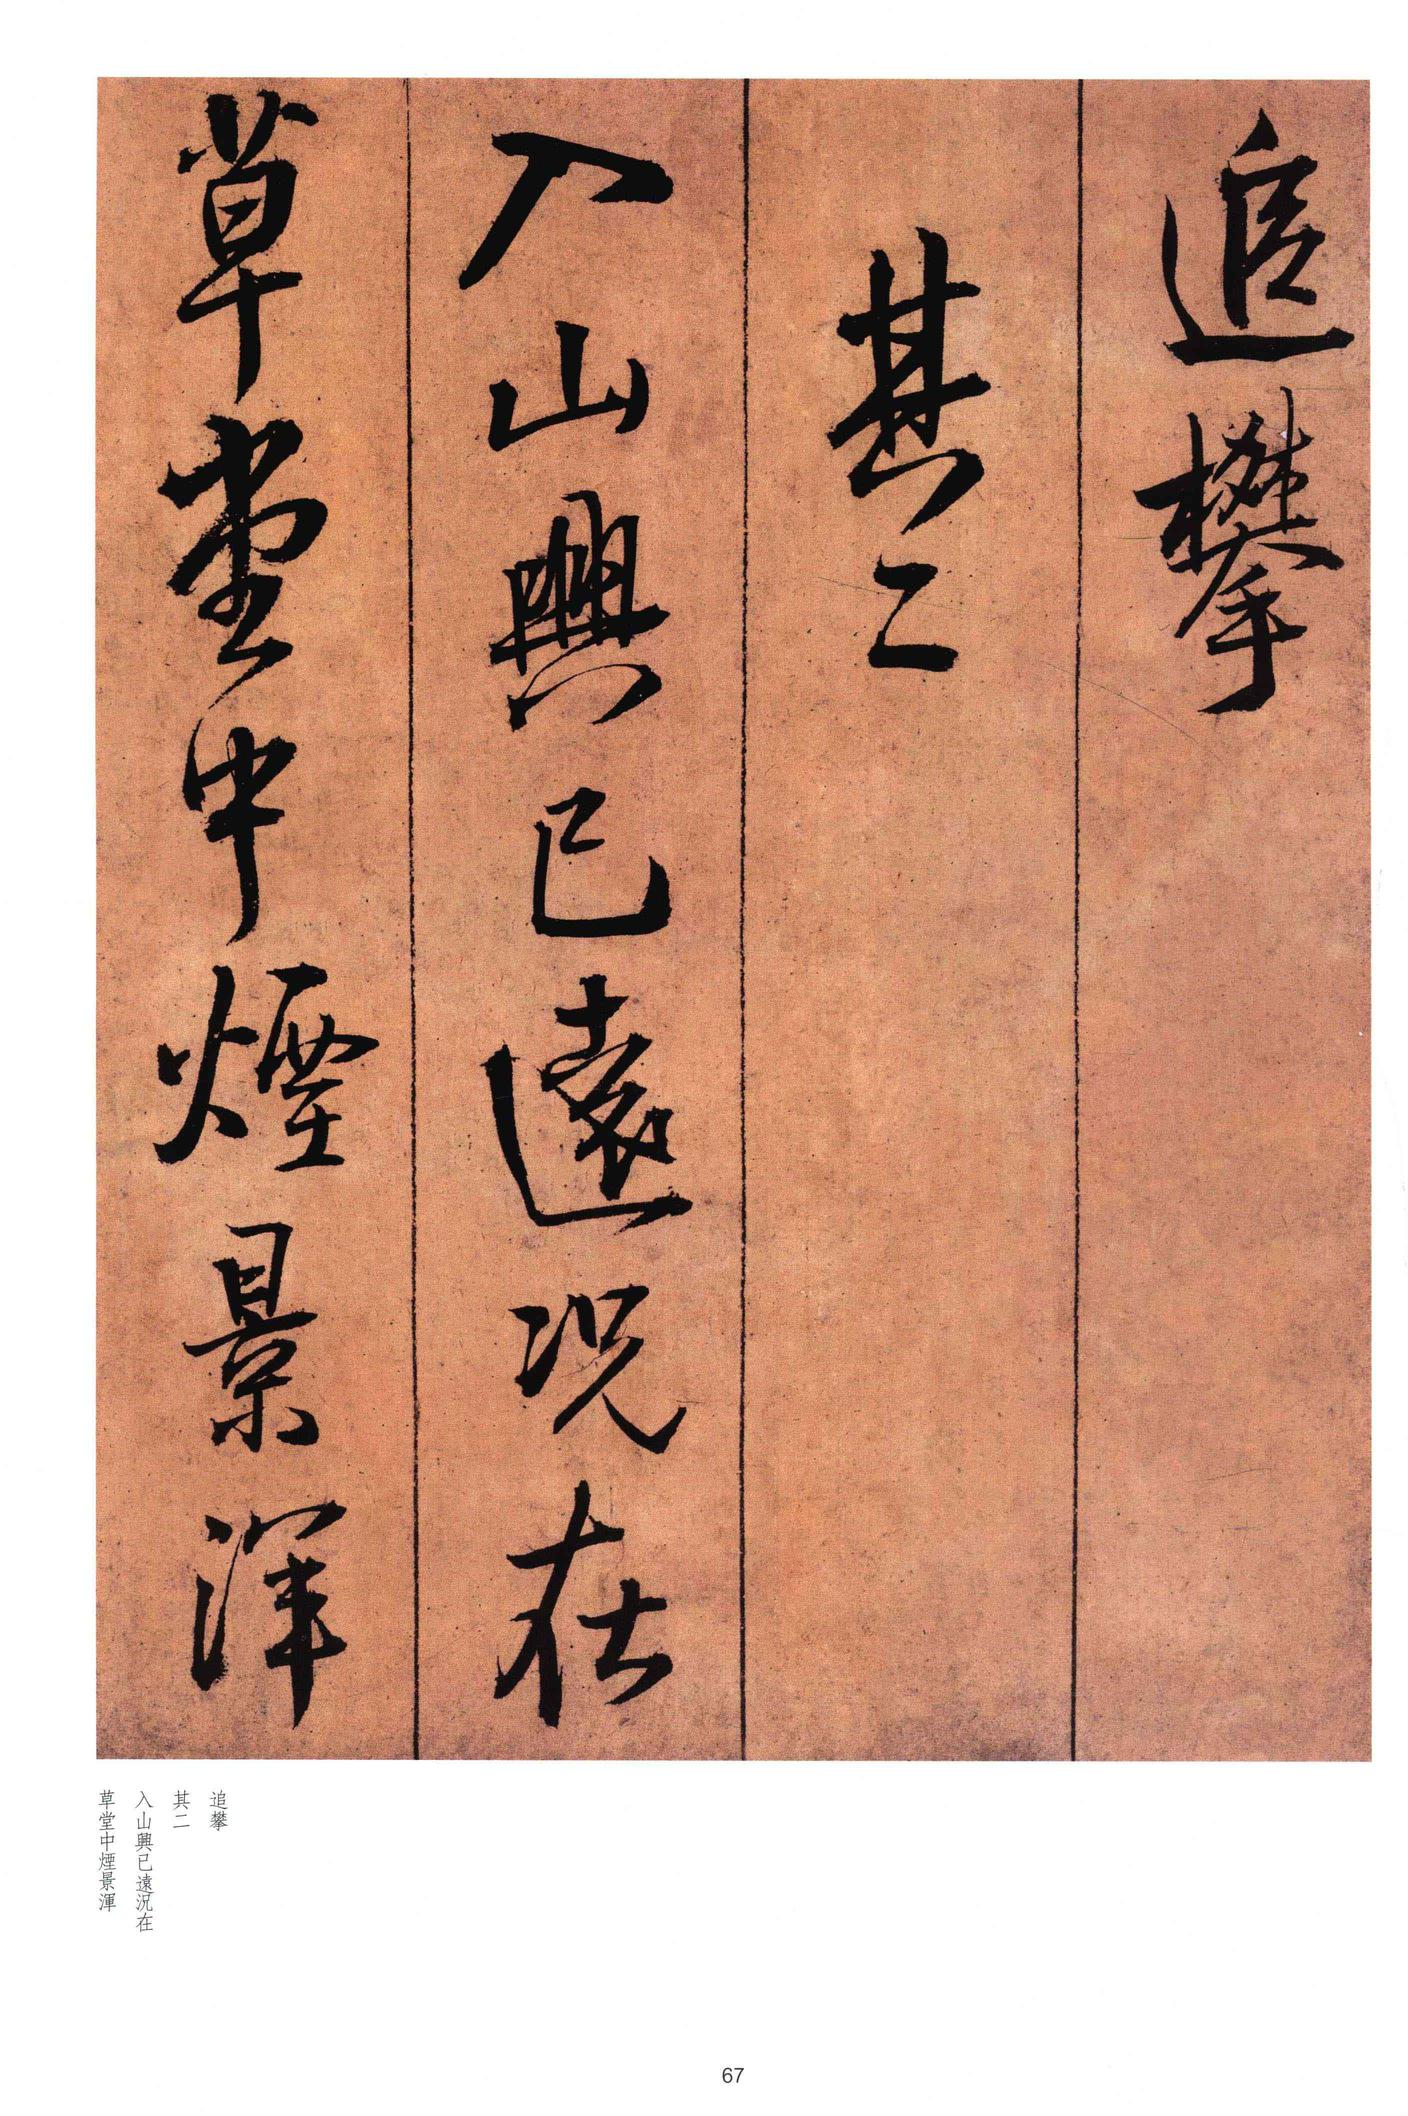 追攀
其二
入山興已遠況在
草堂中煙景渾
追攀
其二
入山興已遠況在
草堂中煙景渾
67